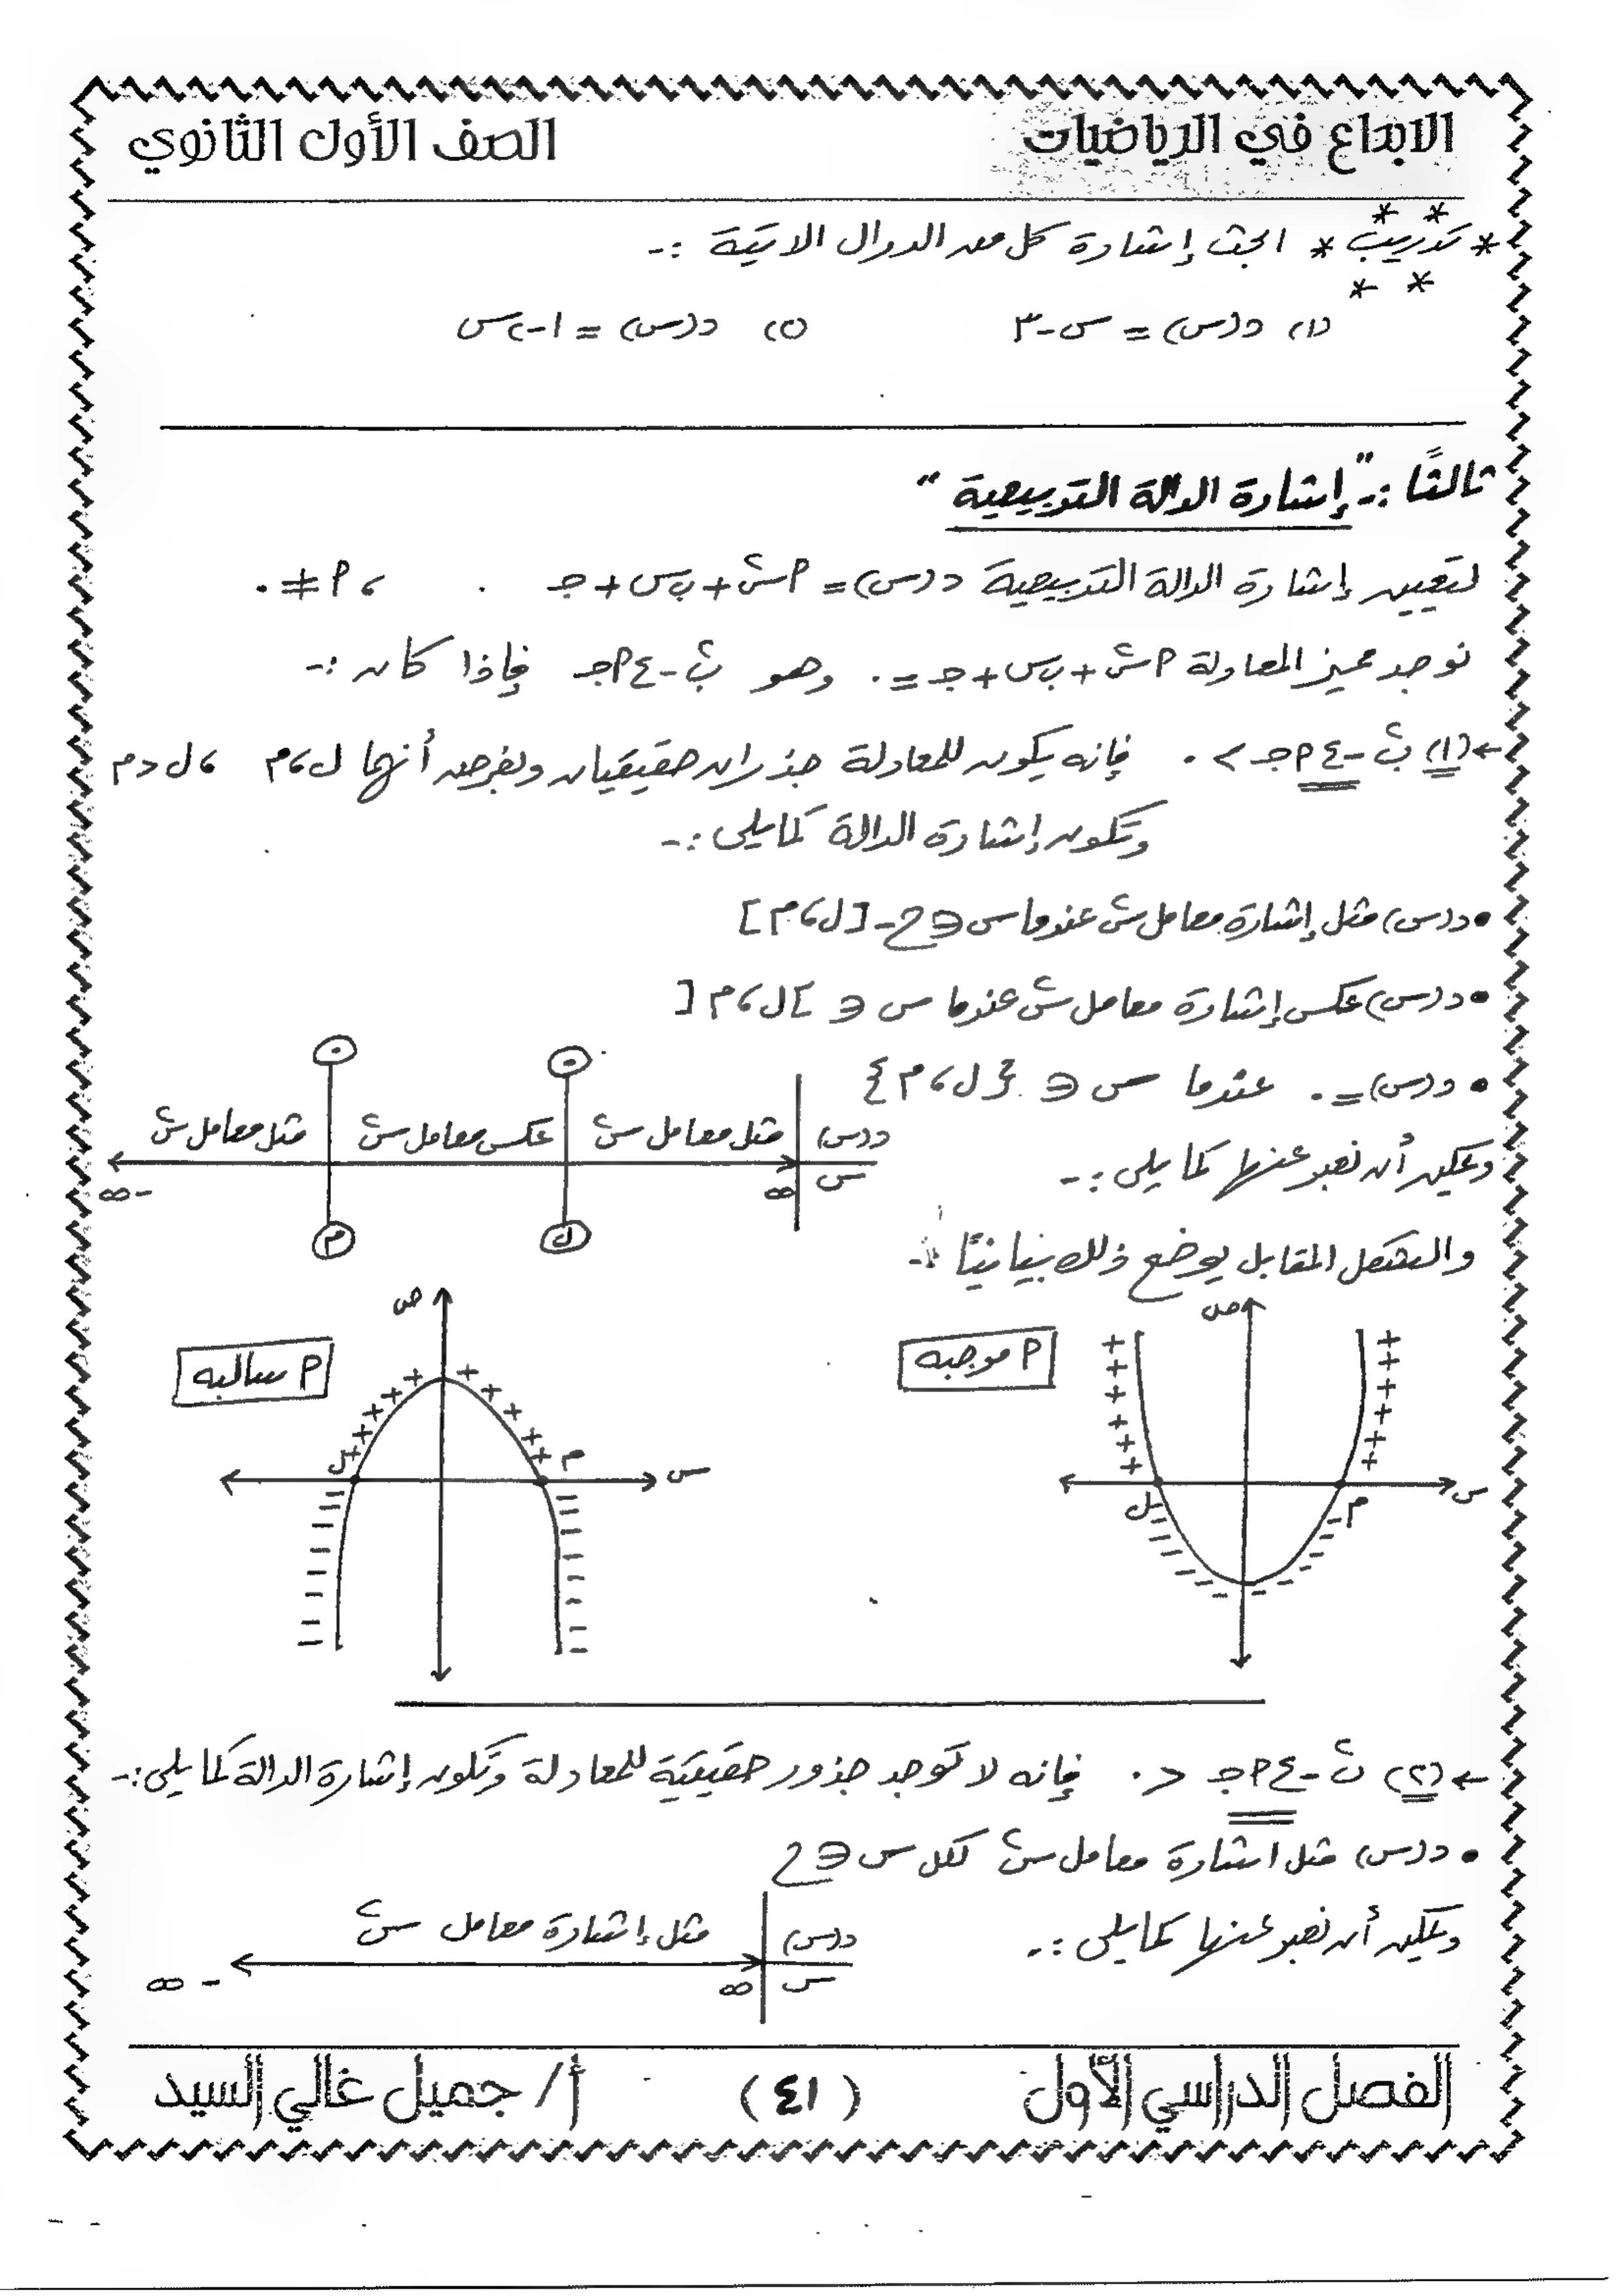 الابداع في الرياضيات
الصف الأول الثانوي
* تدريب * ابحث إشارة كل من الدوال الاتية :-
(١) د(س) = س - ٣
(٢) د(س) = ١ - ٢س
ثالثًا :- " إشارة الدالة التربيعية "
لتعيين إشارة الدالة التربيعية د(س) = أس² + ب س + جـ ، أ ≠ ٠
نوجد مميز المعادلة أس² + ب س + جـ = ٠ وهو ب² - ٤أجـ فإذا كان :-
← (١) ب² - ٤أجـ > ٠ فإنه يكون للمعادلة جذران حقيقيان وبفرض أنهما ل ، م ، ل < م
وتكون إشارة الدالة كما يلى :-
• د(س) مثل إشارة معامل س² عندما س ∈ ح - [ل ، م]
• د(س) عكس إشارة معامل س² عندما س ∈ ]ل ، م[
• د(س) = ٠ عندما س ∈ {ل ، م}
ويمكن أن نعبر عنها كما يلى :-
د(س) مثل معامل س² ٠ عكس معامل س² ٠ مثل معامل س²
س ∞ ل م -∞
والشكل المقابل يوضح ذلك بيانيًا :-
أ موجبه
ص
س
ل
م
أ سالبه
ص
س
ل
م
← (٢) ب² - ٤أجـ < ٠ فإنه لا توجد جذور حقيقية للمعادلة وتكون إشارة الدالة كما يلى :-
• د(س) مثل اشارة معامل س² لكل س ∈ ح
ويمكن أن نعبر عنها كما يلى :-
د(س) مثل إشارة معامل س²
س ∞ -∞
الفصل الدراسي الأول
( ٤١ )
أ/ جميل غالي السيد